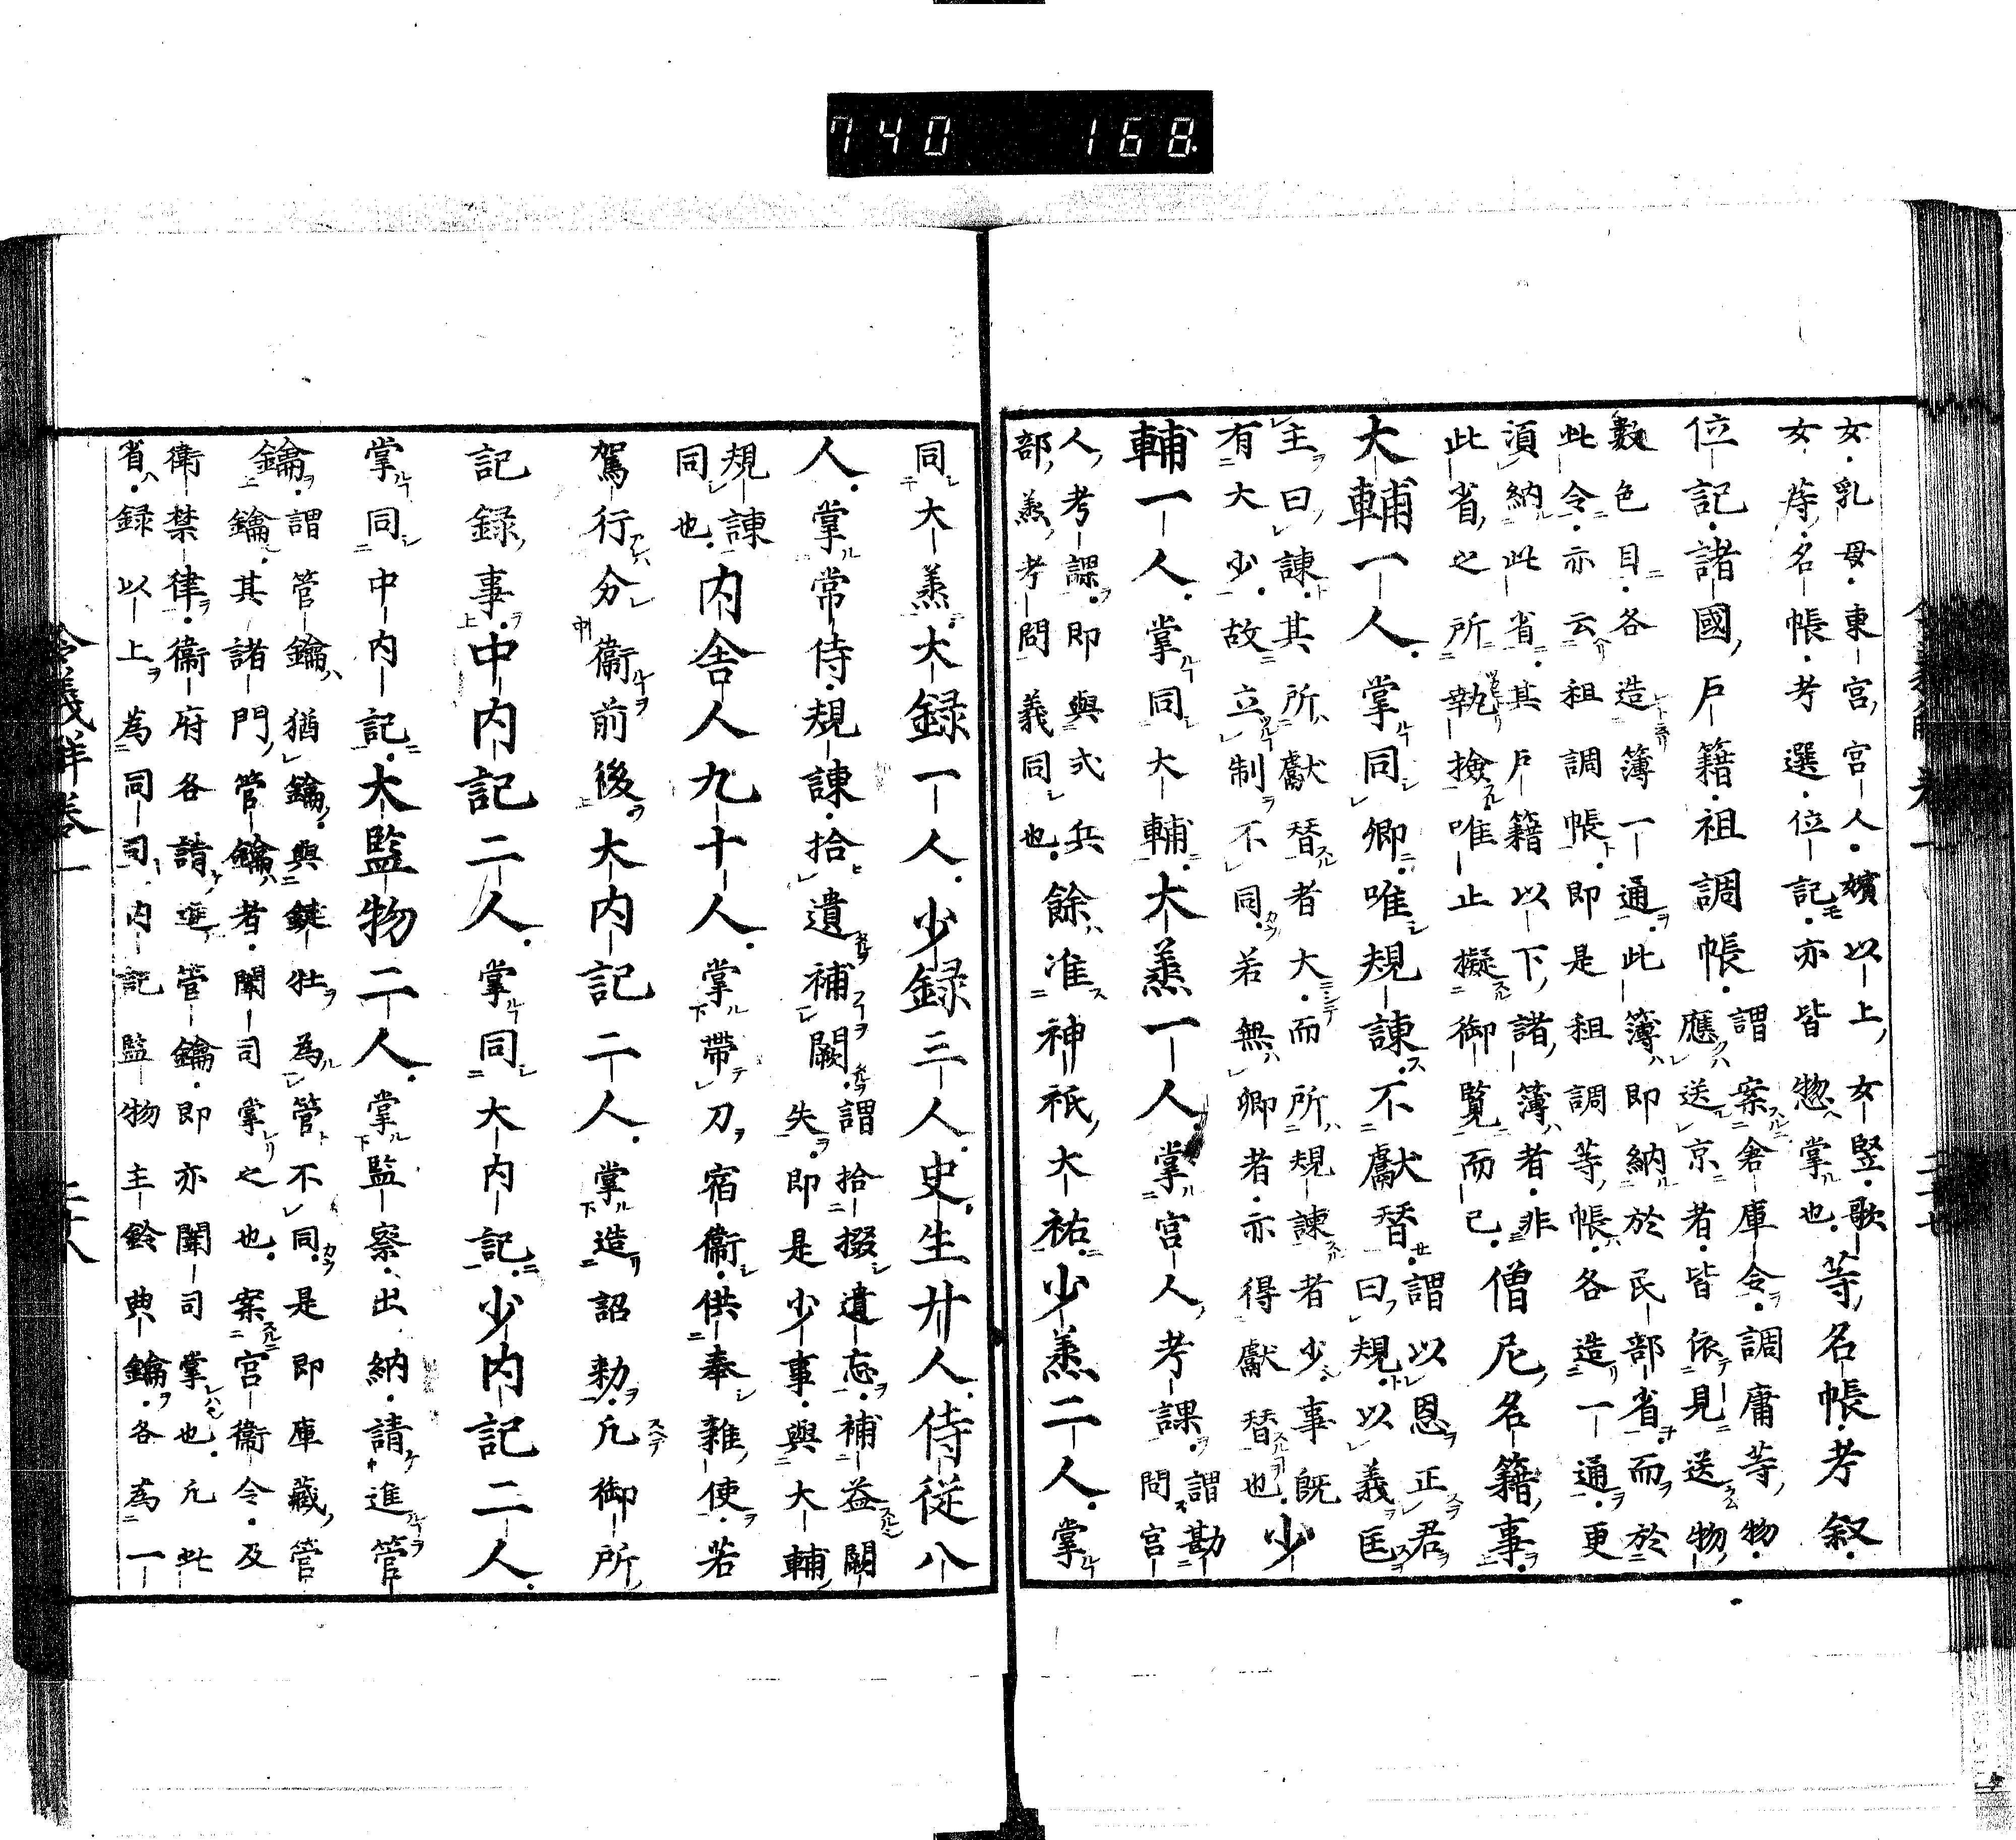 740 168
女乳母東宮宮人嬪以上女竪歌
女等名帳考選位記亦皆惣掌也
等名帳考叙
位記諸國戸籍租調帳
謂案倉庫令調庸等物
應送京者皆依見送物
數色目各造簿一通此簿即納於民部省而於
此令亦云租調帳即是租調等帳各造一通更
須納此省其戸籍以下諸簿者非
此省之所執撿唯止擬御覧而已
僧尼名籍事
大輔一人掌同卿唯規諌不獻替
謂以恩正君
曰規以義匡
主曰諌其所獻替者大而所規諌者少事既
有大少故立制不同若無卿者亦得獻替也
少
輔一人掌同大輔大烝一人掌宮人考課
謂勘
問宮
人考課即與式兵
部烝考問義同也
餘准神祇大祐少烝二人掌
同大烝大録一人少録三人史生廿人侍從八
人掌常侍規諌拾遺補闕
謂拾掇遺忘補益闕
失即是少事與大輔
規諌
同也
内舎人九十人掌帶刀宿衛供奉雜使若
駕行分衛前後大内記二人掌造詔勅凢御所
記録事中内記二人掌同大内記少内記二人
掌同中内記大監物二人掌監察出納請進管
鑰
謂管鑰猶鑰與鍵牡為管不同是即庫藏管
鑰其諸門管鑰者闈司掌之也案宮衛令及
衛禁律衛府各請進管鑰即亦闈司掌也凢此
省録以上為同司内記監物主鈴典鑰各為一
令義解卷一
二十七
令義解卷一
二十八